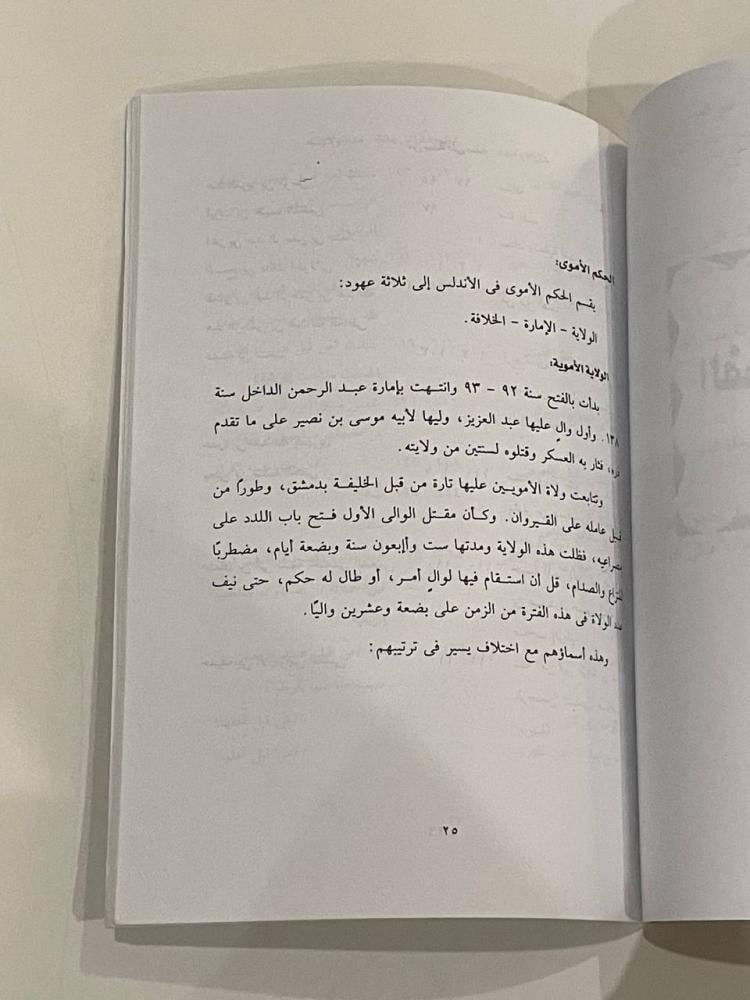 الحكم الأموى:
يقسم الحكم الأموى فى الأندلس إلى ثلاثة عهود:
الولاية – الإمارة – الخلافة.
الولاية الأموية:
بدأت بالفتح سنة ٩٢ – ٩٣ وانتهت بإمارة عبد الرحمن الداخل سنة
١٣٨. وأول والٍ عليها عبد العزيز، وليها لأبيه موسى بن نصير على ما تقدم
فثار به العسكر وقتلوه لسنتين من ولايته.
وتتابعت ولاة الأمويين عليها تارة من قبل الخليفة بدمشق، وطورًا من
قبل عامله على القيروان. وكأن مقتل الوالى الأول فتح باب اللدد على
مصراعيه، فظلت هذه الولاية ومدتها ست وأإبعون سنة وبضعة أيام، مضطربًا
للنزاع والصدام، قل أن استقام فيها لوالٍ أمر، أو طال له حكم، حتى نيف
عدد الولاة فى هذه الفترة من الزمن على بضعة وعشرين واليًا.
وهذه أسماؤهم مع اختلاف يسير فى ترتيبهم:
٢٥